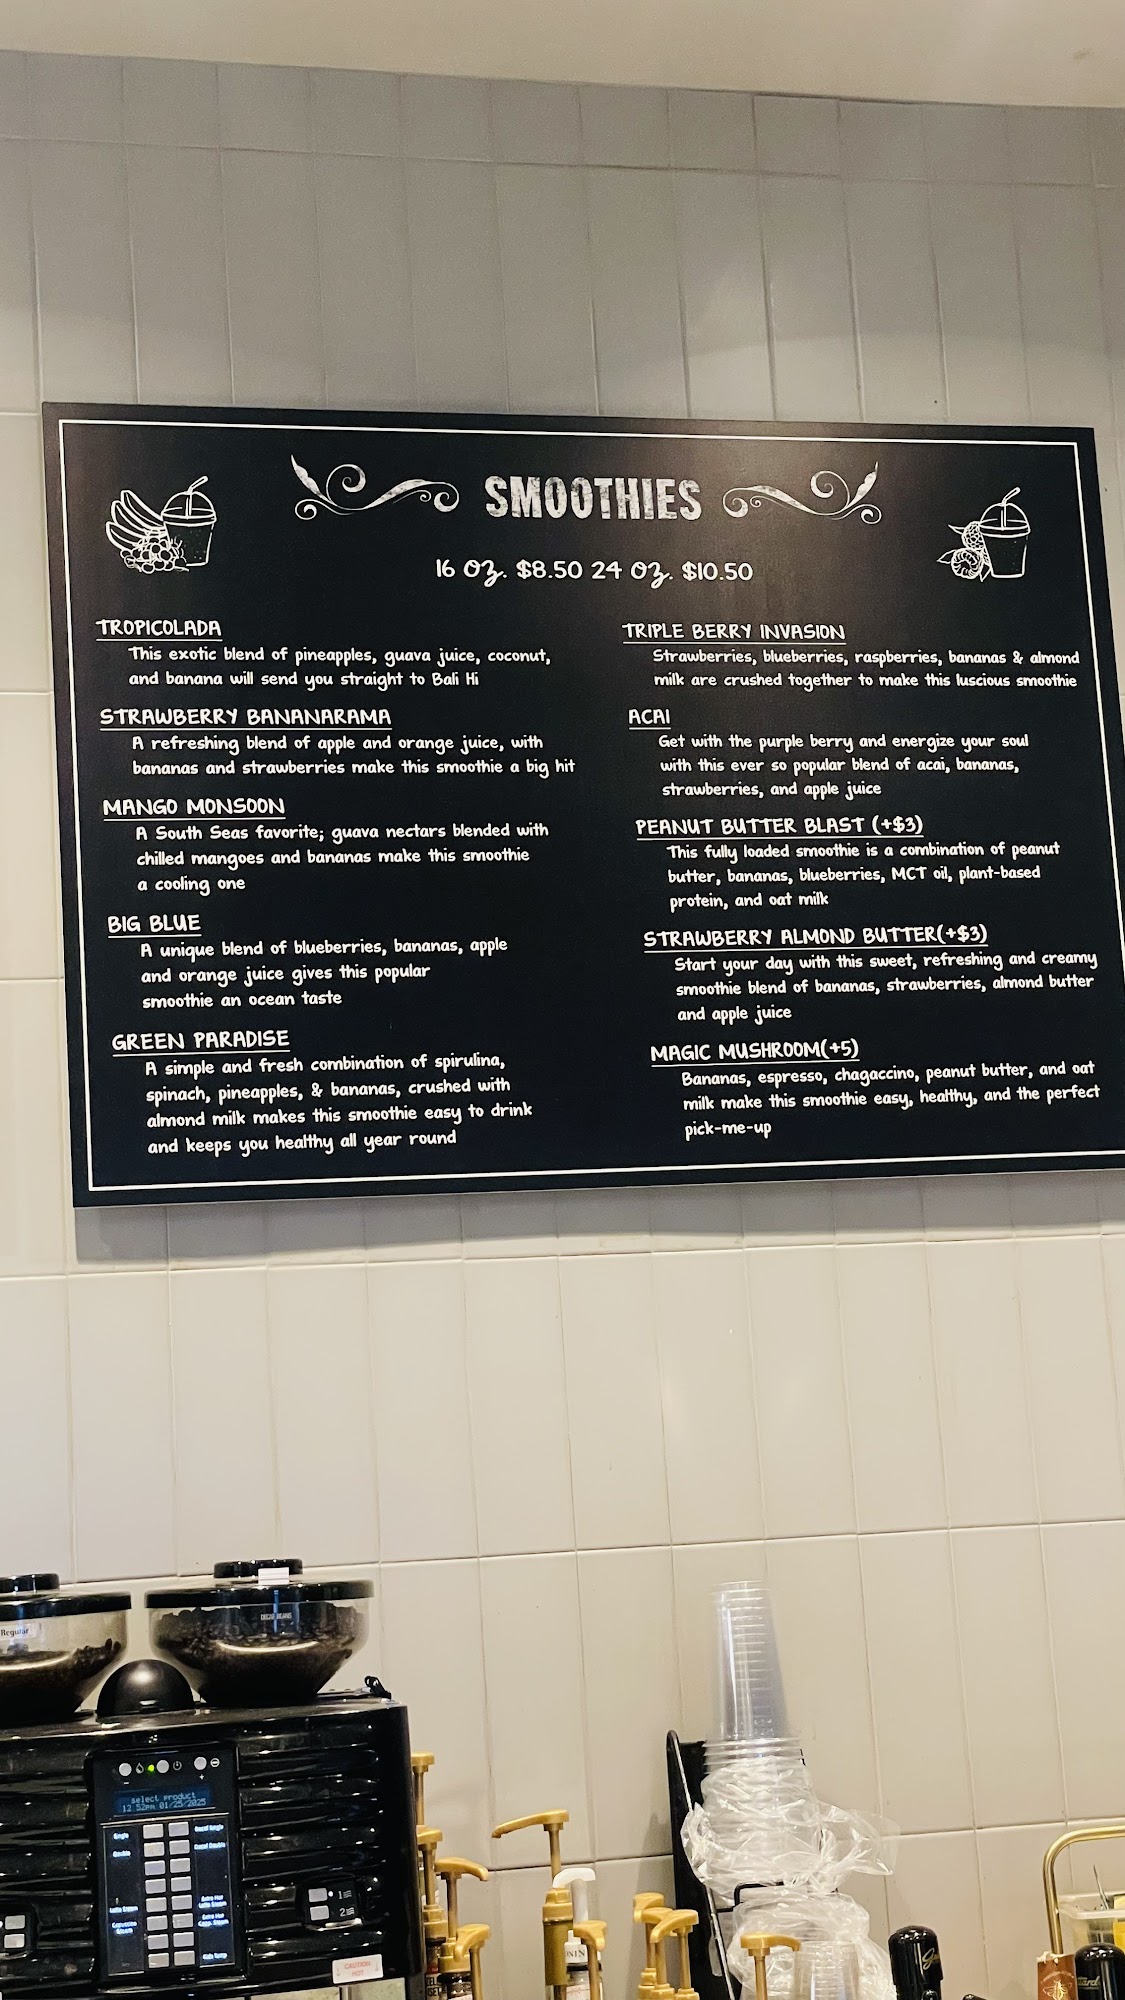 SMOOTHIES
16 oz. $8.50 24 oz. $10.50
TROPICOLADA
This exotic blend of pineapples, guava juice, coconut,
and banana will send you straight to Bali Hi
STRAWBERRY BANANARAMA
A refreshing blend of apple and orange juice, with
bananas and strawberries make this smoothie a big hit
MANGO MONSOON
A South Seas favorite; guava nectars blended with
chilled mangoes and bananas make this smoothie
a cooling one
BIG BLUE
A unique blend of blueberries, bananas, apple
and orange juice gives this popular
smoothie an ocean taste
GREEN PARADISE
A simple and fresh combination of spirulina,
spinach, pineapples, & bananas, crushed with
almond milk makes this smoothie easy to drink
and keeps you healthy all year round
TRIPLE BERRY INVASION
Strawberries, blueberries, raspberries, bananas & almond
milk are crushed together to make this luscious smoothie
ACAI
Get with the purple berry and energize your soul
with this ever so popular blend of acai, bananas,
strawberries, and apple juice
PEANUT BUTTER BLAST (+$3)
This fully loaded smoothie is a combination of peanut
butter, bananas, blueberries, MCT oil, plant-based
protein, and oat milk
STRAWBERRY ALMOND BUTTER(+$3)
Start your day with this sweet, refreshing and creamy
smoothie blend of bananas, strawberries, almond butter
and apple juice
MAGIC MUSHROOM(+5)
Bananas, espresso, chagaccino, peanut butter, and oat
milk make this smoothie easy, healthy, and the perfect
pick-me-up
Regular
DECAF BEANS
select product
12 52PM 01/25/2025
Single
Decaf Single
Double
Decaf Double
1
2
CAUTION
HOT